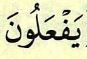 يَفْعَلُونَ